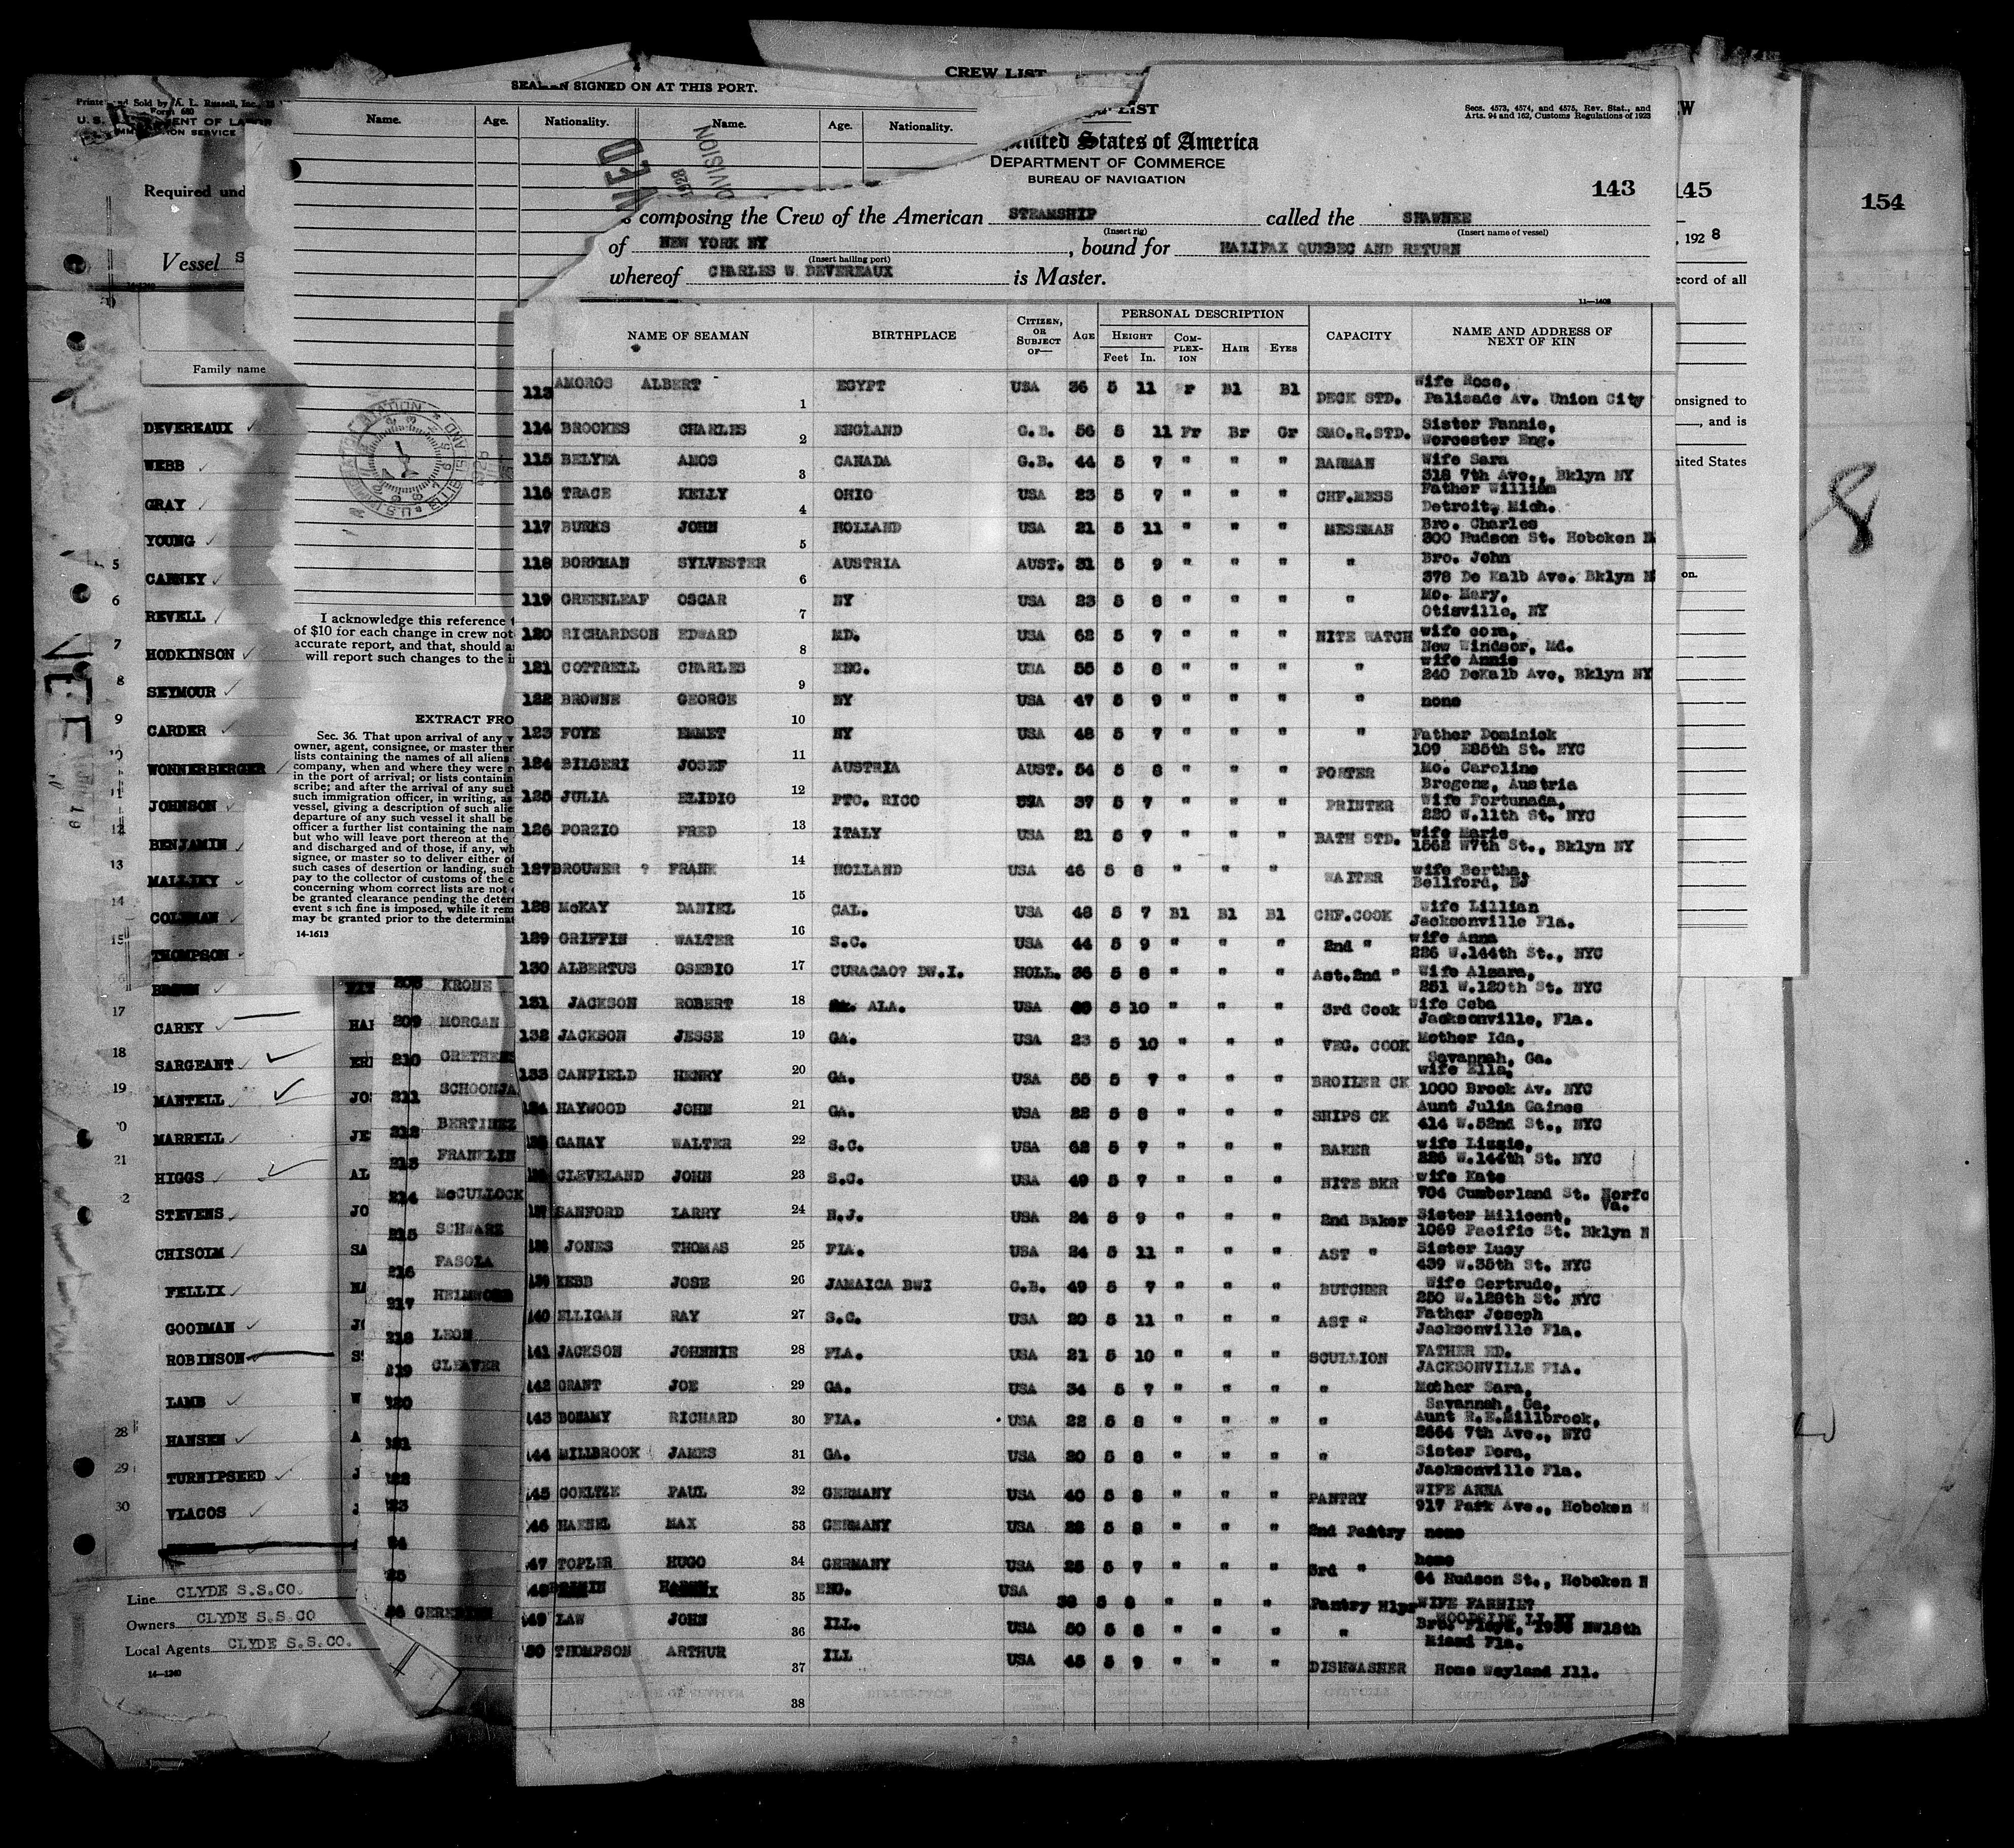 CREW LIST
SEAMAN SIGNED ON AT THIS PORT.
Name. Age. Nationality. Name. Age. Nationality.
Sold by A. L. Russell, Inc.
Form 680
IMMIGRATION SERVICE
Required und
Vessel S
14-1240
Family name
DEVEREAUX
WEBB
GRAY
YOUNG
5 CARNEY
6 REVELL
7 HODKINSON
8 SEYMOUR
9 CARDER
10 WONNERBERGER
11 JOHNSON
12 BENJAMIN
13 MALLIKY
14 COLEMAN
15 THOMPSON
BROWN
17 CAREY
18 SARGEANT
19 MANTELL
MARRELL
21 HIGGS
STEVENS
CHISOLM
FELLIX
GOODMAN
ROBINSON
LAMB
28 HANSEN
29 TURNIPSEED
30 VLACOS
Line CLYDE S.S.CO.
Owners CLYDE S.S.CO
Local Agents CLYDE S.S.CO.
14-1240
I acknowledge this reference
of $10 for each change in crew not
accurate report, and that, should a
will report such changes to the i
EXTRACT FRO
Sec. 36. That upon arrival of any v
owner, agent, consignee, or master ther
lists containing the names of all aliens
company, when and where they were r
in the port of arrival; or lists containin
scribe; and after the arrival of any such
such immigration officer, in writing, as
vessel, giving a description of such alie
departure of any such vessel it shall be
officer a further list containing the nam
but who will leave port thereon at the
and discharged and of those, if any, wh
signee, or master so to deliver either of
such cases of desertion or landing, such
pay to the collector of customs of the c
concerning whom correct lists are not
be granted clearance pending the deter
event such fine is imposed, while it rem
may be granted prior to the determinat
14-1613
208 KRONE
209 MORGAN
210 GRETHENS
211 SCHOONJA
212 BERTINEZ
213 FRANKLIN
214 McCULLOCK
215 SCHWARZ
216 FASOLA
217 HEIMWORD
218 LEON
219 CLEAVER
LIST
Secs. 4573, 4574, and 4575, Rev. Stat., and
Arts. 94 and 162, Customs Regulations of 1923
United States of America
DEPARTMENT OF COMMERCE
BUREAU OF NAVIGATION
143
composing the Crew of the American STEAMSHIP called the SHAWNEE
(Insert rig) (Insert name of vessel)
of NEW YORK NY, bound for HALIFAX QUEBEC AND RETURN
(Insert hailing port)
whereof CHARLES W. DEVEREAUX is Master.
11-1408
NAME OF SEAMAN BIRTHPLACE CITIZEN, OR SUBJECT OF— AGE PERSONAL DESCRIPTION CAPACITY NAME AND ADDRESS OF NEXT OF KIN
HEIGHT Feet In. COMPLEXION HAIR EYES
113 AMOROS ALBERT 1 EGYPT USA 36 5 11 Fr Bl Bl DECK STD. Wife Rose, Palisade Av. Union City
114 BROOKES CHARLES 2 ENGLAND G.B. 56 5 11 Fr Br Gr SMO.R.STD. Sister Fannie, Worcester Eng.
115 BELYEA AMOS 3 CANADA G.B. 44 5 7 " " " BARMAN Wife Sara 318 7th Ave., Bklyn NY
116 TRACE KELLY 4 OHIO USA 23 5 7 " " " CHF.MESS Father William Detroit, Mich.
117 BURKS JOHN 5 HOLLAND USA 21 5 11 " " " MESSMAN Bro. Charles 300 Hudson St. Hoboken N
118 BORKMAN SYLVESTER 6 AUSTRIA AUST. 31 5 9 " " " " Bro. John 378 De Kalb Ave. Bklyn N
119 GREENLEAF OSCAR 7 NY USA 23 5 8 " " " " Mo. Mary, Otisville, NY
120 RICHARDSON EDWARD 8 MD. USA 62 5 7 " " " NITE WATCH wife cora, New Windsor, Md.
121 COTTRELL CHARLES 9 ENG. USA 55 5 8 " " " " wife Annie 240 DeKalb Ave, Bklyn NY
122 BROWNE GEORGE 10 NY USA 47 5 9 " " " " none
123 FOYE EMMET 11 NY USA 48 5 7 " " " " Father Dominick 109 E85th St. NYC
124 BILGERI JOSEF 12 AUSTRIA AUST. 54 5 8 " " " PORTER Mo. Caroline Bregenz, Austria
125 JULIA ELIDIO PTO. RICO USA 37 5 7 " " " PRINTER Wife Fortunada, 220 W.11th St. NYC
126 PORZIO FRED 13 ITALY USA 21 5 7 " " " BATH STD. wife Marie 1562 W7th St., Bklyn NY
127 BROUWER ? FRANK 14 HOLLAND USA 46 5 8 " " " WAITER wife Bertha, Bellford, NJ
128 McKAY DANIEL 15 CAL. USA 48 5 7 Bl Bl Bl CHF.COOK Wife Lillian Jacksonville Fla.
129 GRIFFIN WALTER 16 S.C. USA 44 5 9 " " " 2nd " wife Anna 226 W.144th St., NYC
130 ALBERTUS OSEBIO 17 CURACAO? DW.I. HOLL. 36 5 8 " " " Ast.2nd " Wife Alzara, 251 W.120th St. NYC
131 JACKSON ROBERT 18 ALA. USA 5 10 " " " 3rd Cook Wife Ceba Jacksonville, Fla.
132 JACKSON JESSE 19 GA. USA 23 5 10 " " " VEG. COOK Mother Ida, Savannah, Ga.
133 CANFIELD HENRY 20 GA. USA 55 5 7 " " " BROILER CK wife Ella, 1000 Brook Av. NYC
134 HAYWOOD JOHN 21 GA. USA 22 5 8 " " " SHIPS CK Aunt Julia Gaines 414 W.52nd St., NYC
GAHAY WALTER 22 S.C. USA 62 5 7 " " " BAKER wife Lizzie, 226 W.144th St. NYC
CLEVELAND JOHN 23 S.C. USA 49 5 7 " " " NITE BKR wife Kate 704 Cumberland St. Norfo Va.
SANFORD LARRY 24 N.J. USA 24 5 9 " " " 2nd Baker Sister Milicent, 1069 Pacific St. Bklyn N
JONES THOMAS 25 FLA. USA 24 5 11 " " " AST " Sister Lucy 439 W.35th St. NYC
139 KEBB JOSE 26 JAMAICA BWI G.B. 49 5 7 " " " BUTCHER Wife Gertrude, 250 W.128th St. NYC
140 ELLIGAN RAY 27 S.C. USA 20 5 11 " " " AST " Father Joseph Jacksonville Fla.
141 JACKSON JOHNNIE 28 FLA. USA 21 5 10 " " " SCULLION FATHER ED. JACKSONVILLE FLA.
142 GRANT JOE 29 GA. USA 34 5 7 " " " " Mother Sara, Savannah, Ga.
143 BONAMY RICHARD 30 FLA. USA 22 5 8 " " " " Aunt R.E.Millbrook, 2664 7th Ave., NYC
144 MILLBROOK JAMES 31 GA. USA 20 5 8 " " " " Sister Dora, Jacksonville Fla.
145 GOELTZE PAUL 32 GERMANY USA 40 5 8 " " " PANTRY WIFE ANNA 917 Park Ave., Hoboken
46 HAENEL MAX 33 GERMANY USA 5 8 " " " 2nd Pantry none
47 TOPLER HUGO 34 GERMANY USA 25 5 7 " " " 3rd " home 64 Hudson St., Hoboken N
35 ENG. USA 5 8 " " " Pantry Hlpr WIFE WOODSIDE LI NY
149 LAW JOHN 36 ILL. USA 50 5 8 " " " " Bro. Floyd, NW18th Miami Fla.
THOMPSON ARTHUR 37 ILL USA 45 5 9 " " " DISHWASHER Home Wayland Ill.
38
145
, 1928
ecord of all
onsigned to
, and is
nited States
on.
154
8